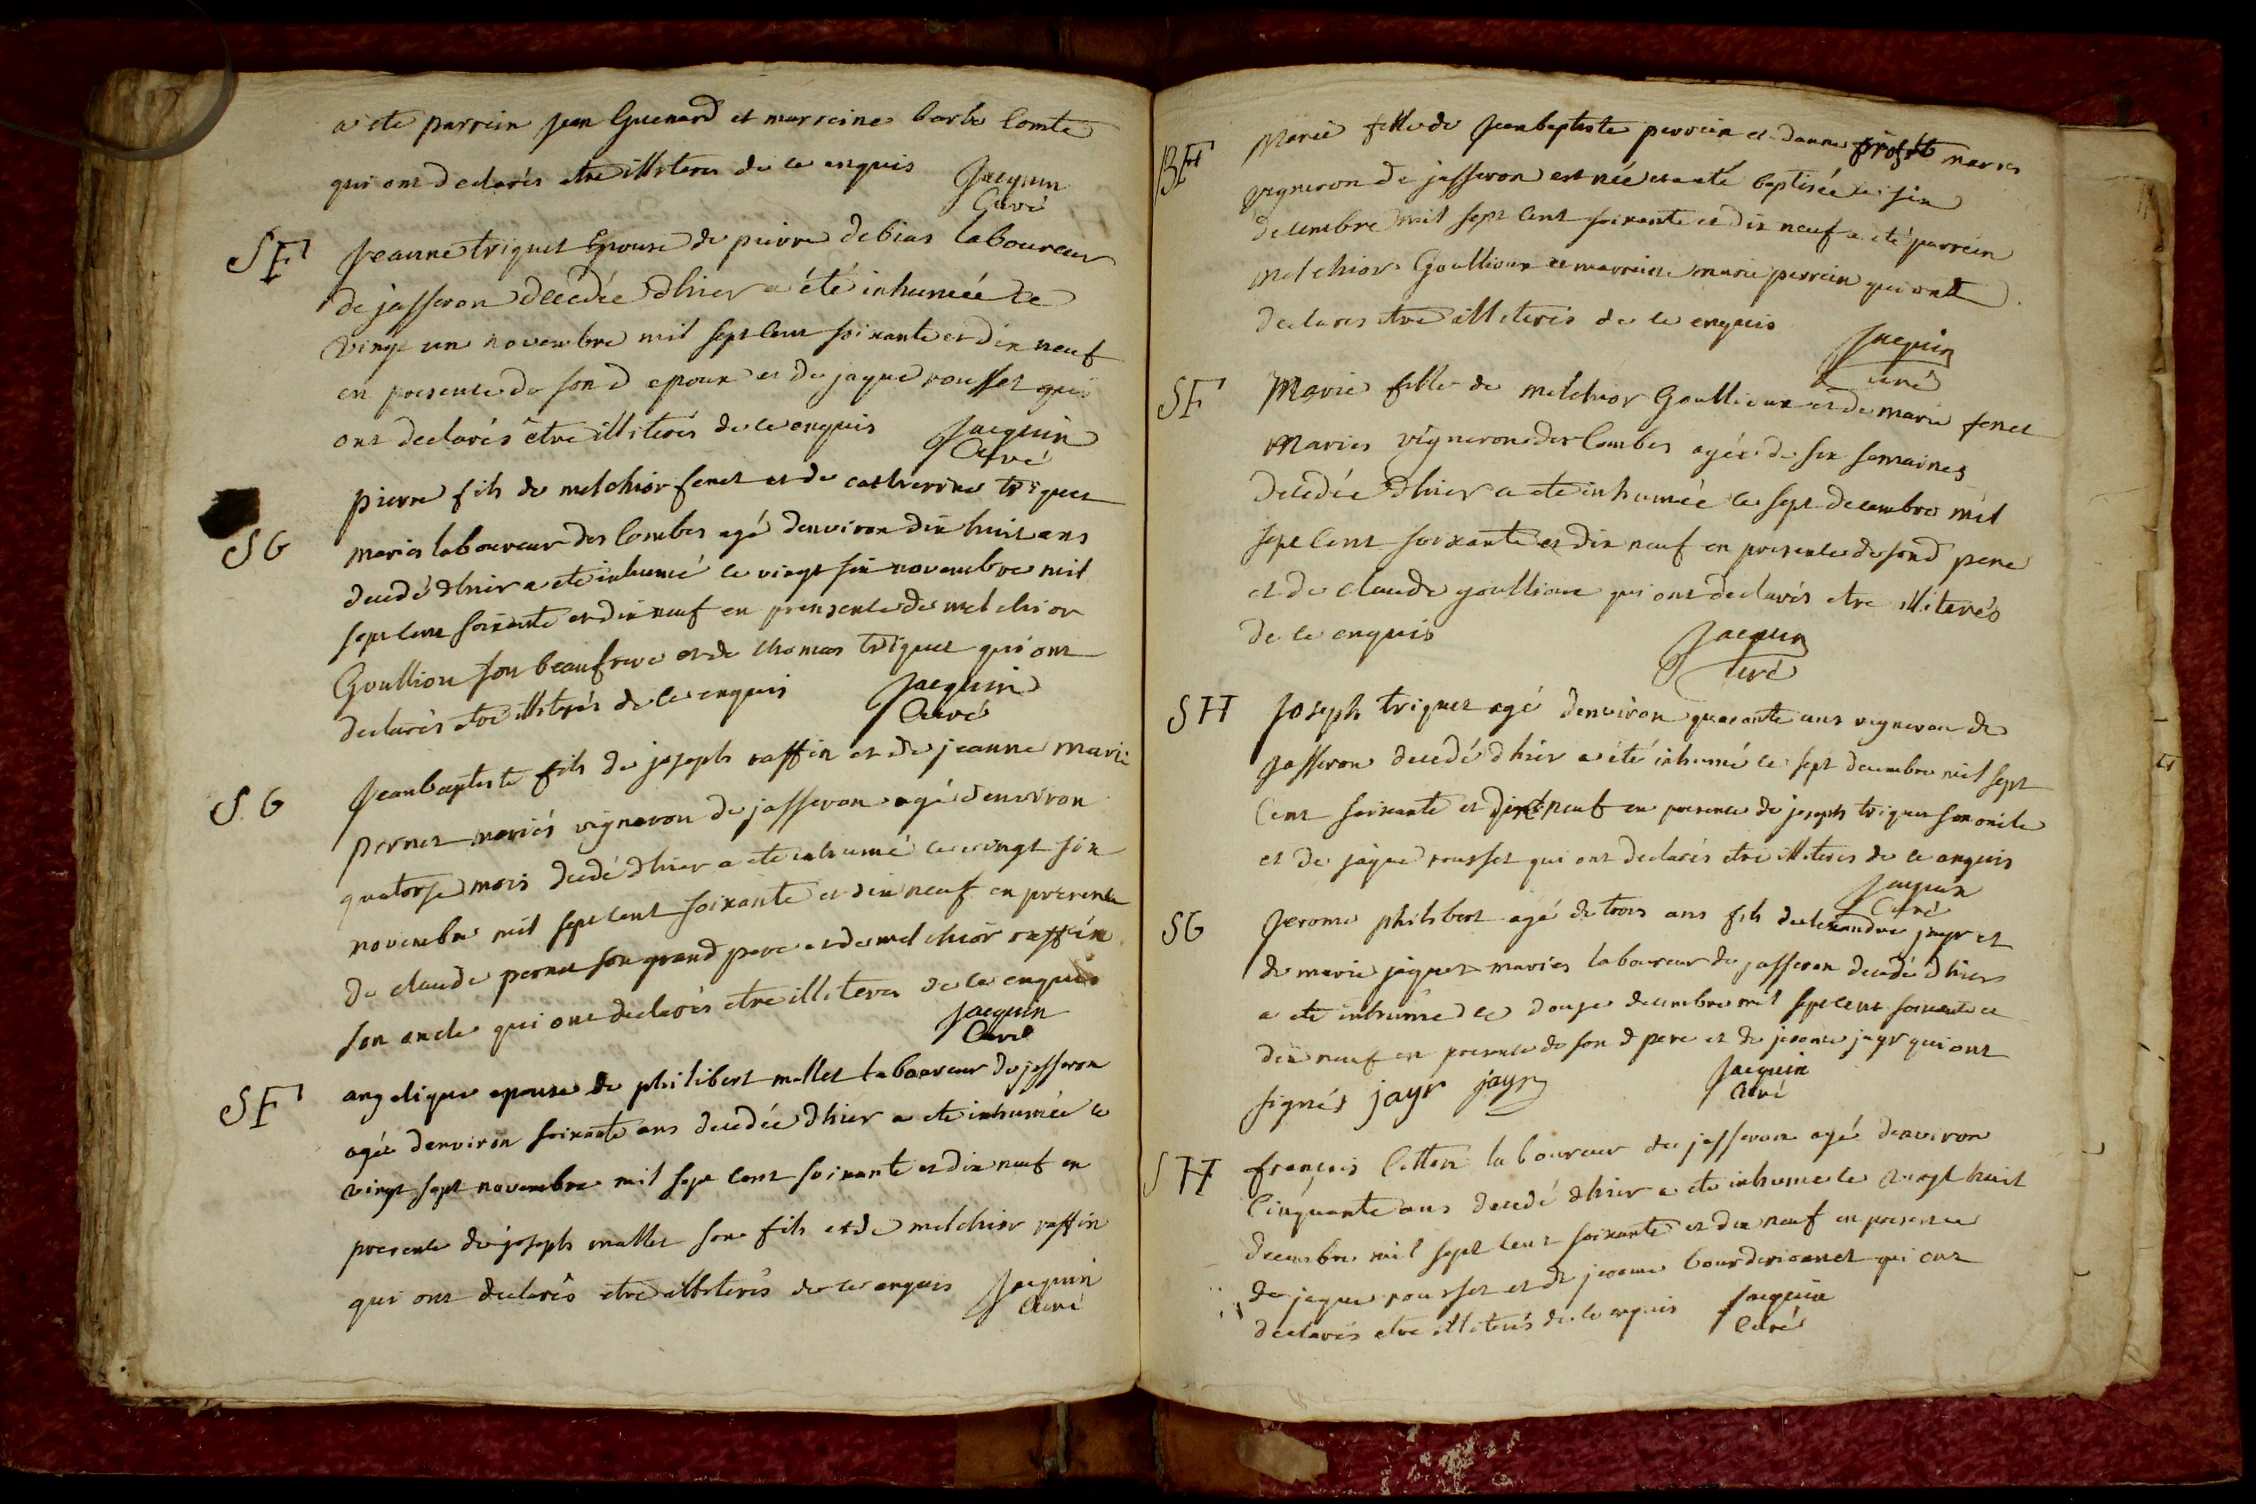 a ete parrein jean Guenard et marreine barbe Comte
qui ont declarés etre illiteres de ce enquis Jacquin
Curé
SF Jeanne triquet Epouse de pierre debias laboureur
de jasseron decedée dhier a été inhumée le
vingt un novembre mil sept cent soixante et dix neuf
en presence de son d epoux et de jaque rousset qui
ont declarés être illiterés de ce enquis Jacquin
Curé
pierre fils de melchior fenet et de catherine triquet
SG mariés laboureur des Combes agé denviron dix huit ans
decedé dhier a ete inhumé le vingt six novembre mil
sept cent soixante et dix neuf en prensence de melchior
Goullion son beaufrere et de thomas triquet qui ont
declarés etre illiterés de ce enquis Jacquin
Curé
S.G Jeanbaptiste fils de joseph raffin et de jeanne marie
pernet mariés vigneron de jasseron agé denviron
quatorse mois decedé dhier a ete inhumé le vingt six
novembre mil sept cent soixante et dix neuf en presence
de claude pernet son grand pere et de melchior raffin
son oncle qui ont declarés etre illiteres de ce enquis
Jacquin
Curé
SF angelique epouse de philibert mallet laboureur de jasseron
agée denviron soixante ans decedée dhier a ete inhumée le
vingt sept novembre mil sept cent soixante et dix neuf en
presence de joseph mallet son fils et de melchior raffin
qui ont declarés etre illiterés de ce enquis Jacquin
Curé
BF Marie fille de Jeanbaptiste perrein et danne mariés
vigneron de jasseron est née et a eté baptisée le six
decembre mil sept cent soixante et dix neuf a eté parrein
melchior Goullioux et marreine marie perrein qui ont
declares etre illiterés de ce enquis Jacquin
curé
SF Marie fille de melchior Goullioux et de marie fenet
Mariés vigneron des Combes agée de six semaines
decedée dhier a ete inhumée le sept decembre mil
sept cent soixante et dix neuf en presence de son d pere
et de claude goullioux qui ont declarés etre illiterés
de ce enquis Jacquin
curé
SH Joseph triquet agé denviron quarante ans vigneron de
Jasseron decedé dhier a été inhumé le sept decembre mil sept
Cent soixante et dix neuf en presence de joseph triquet son oncle
et de jaque rousset qui ont declarés etre illiteres de ce enquis
Jacquin
Curé
SG Jerome philibert agé de trois ans fils dalexandre jayr et
de marie jaquet mariés laboureur de jasseron decedé dhier
a ete inhumé le douze decembre mil sept cent soixante et
dix neuf en presence de son d pere et de jerome jayr qui ont
signés jayr jayr Jacquin
Curé
SH françois laboureur de jasseron agé denviron
Cinquante ans decedé dhier a ete inhumé le vingt huit
decembre mil sept cent soixante et dix neuf en presence
de jaque rousset et de jerome bourderionnet qui ont
declarés etre illiterés de ce enquis Jacquin
Curé